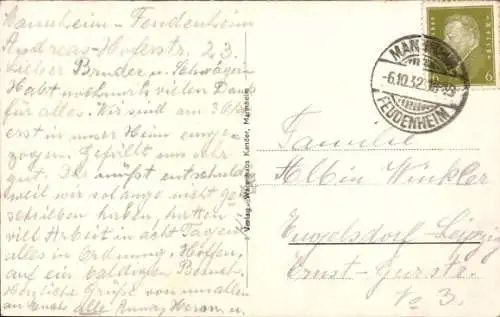 Mannheim-Feudenheim
Andreas-Hoferstr. 23.
Lieber Bruder u. Schwägerin
Habt nochmals vielen Dank
für alles. Wir sind am
erst in unser Heim einge-
zogen. Gefällt uns sehr
gut. Ihr müßt entschuld
weil wir solange nicht ge-
schrieben haben, hatten
viel Arbeit in acht Tagen
alles in Ordnung. Hoffen,
auf ein baldigen Besuch.
Herzliche Grüße von uns allen
an Euch alle
Verlag: Warenhaus Kander, Mannheim
6
MANNHEIM
-6.10.32
FEUDENHEIM
Familie
Albin Winkler
Engelsdorf-Leipzig
Ernst-
No 3.